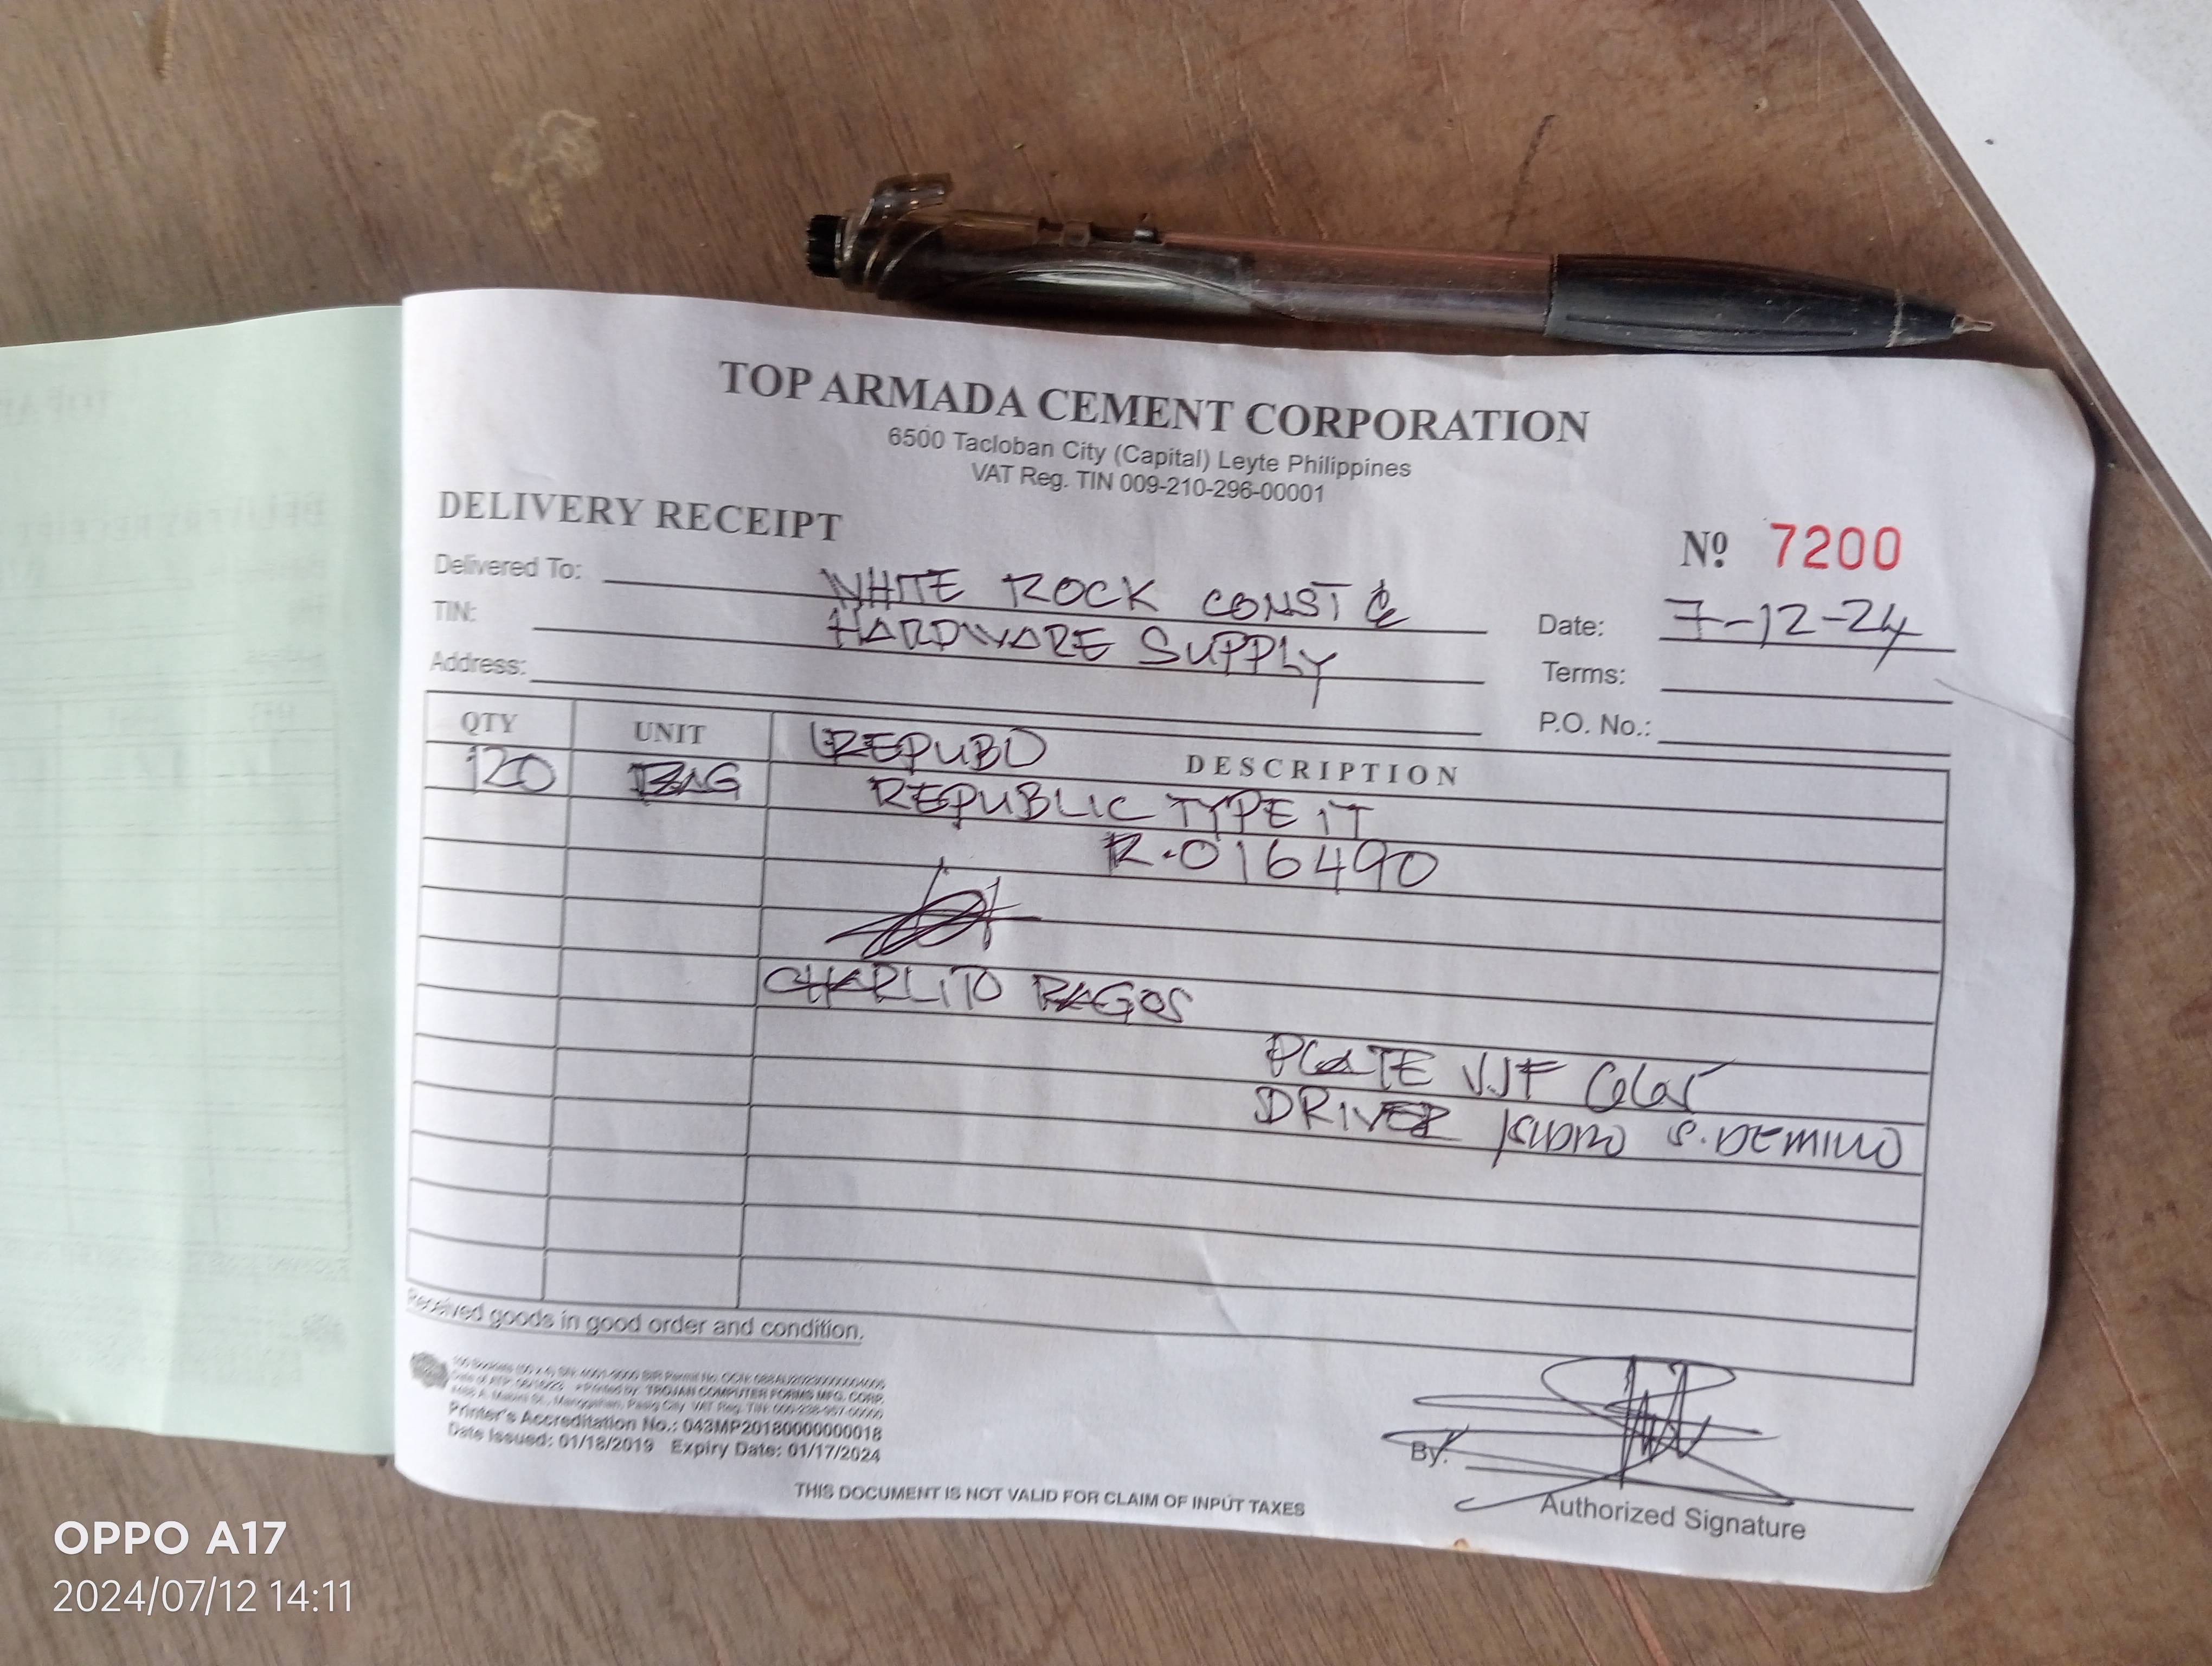 TOP ARMADA CEMENT CORPORATION
6500 Tacloban City (Capital) Leyte Philippines
VAT Reg. TIN 009-210-296-00001
DELIVERY RECEIPT
Nº 7200
Delivered To: WHITE ROCK CONST &
TIN: HARDWARE SUPPLY
Address:
Date: 7-12-24
Terms:
P.O. No.:
QTY UNIT DESCRIPTION
REPUBL
120 BAG REPUBLIC TYPE 1T
R.016490
CHARLITO RAGOS
PLATE VJF
DRIVER ISIDRO S. DEMILLO
Received goods in good order and condition.
Date of ATP: Printed by: TROJAN COMPUTER FORMS MFG. CORP.
Pasig City VAT Reg. TIN:
Printer's Accreditation No.: 043MP20180000000018
Date Issued: 01/18/2019 Expiry Date: 01/17/2024
By:
Authorized Signature
THIS DOCUMENT IS NOT VALID FOR CLAIM OF INPUT TAXES
OPPO A17
2024/07/12 14:11